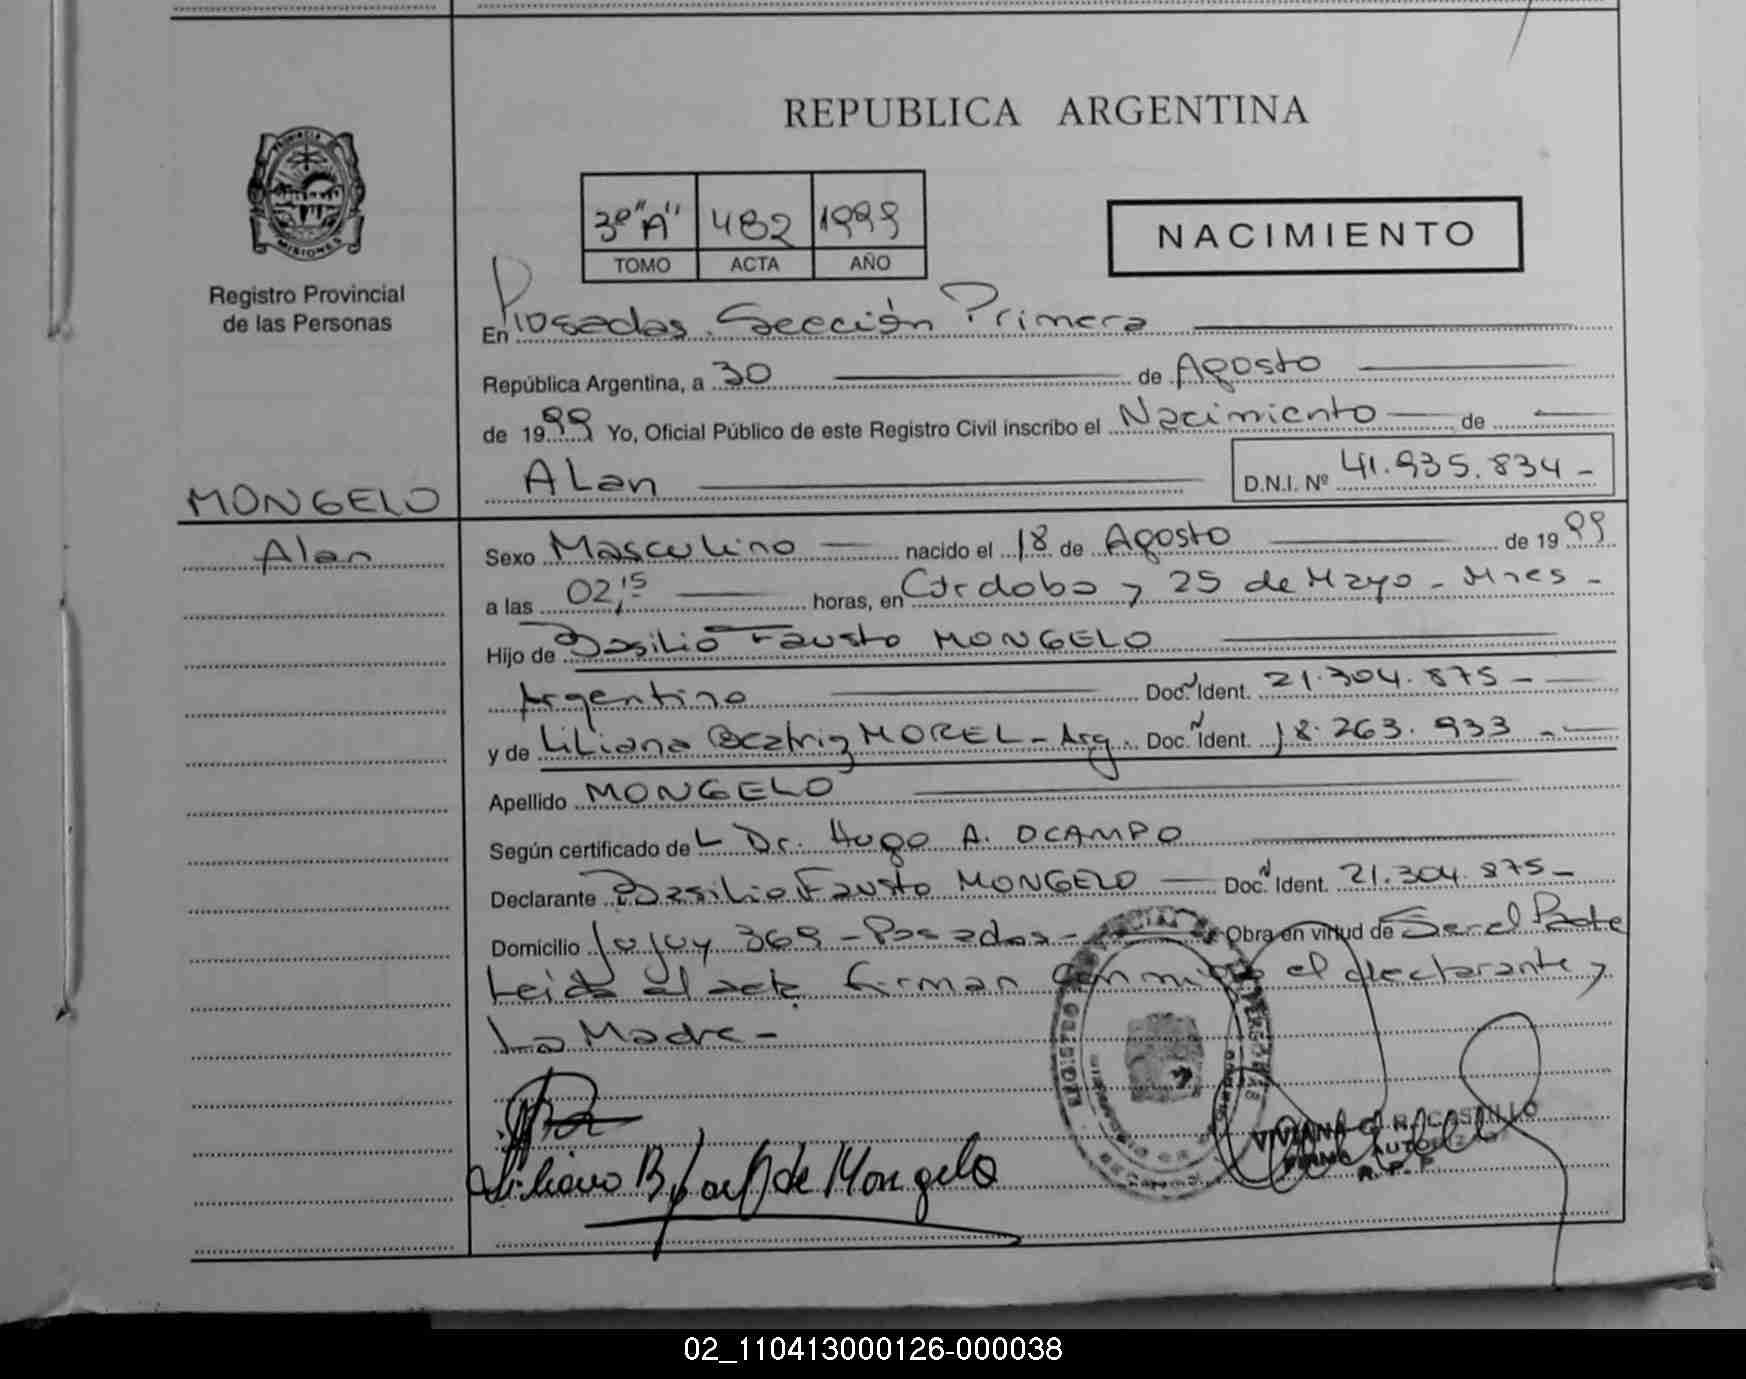 REPUBLICA ARGENTINA
PROVINCIA
MISIONES
Registro Provincial
de las Personas
3º "A" 482 1999
TOMO ACTA AÑO
NACIMIENTO
En Posadas. Sección Primera
República Argentina, a 30 de Agosto
de 1999 Yo, Oficial Público de este Registro Civil inscribo el Nacimiento de
Alan D.N.I. Nº 41.935.834 -
MONGELO
Alan
Sexo Masculino nacido el 18 de Agosto de 1999
a las 02,15 horas, en Córdoba y 25 de Mayo - Mnes -
Hijo de Basilio Fausto MONGELO
Argentino Doc. N Ident. 21.304.875 -
y de Liliana Beatriz MOREL - Arg. Doc. N Ident. 18.263.933 -
Apellido MONGELO
Según certificado del Dr. Hugo A. OCAMPO
Declarante Basilio Fausto MONGELO Doc. N Ident. 21.304.875 -
Domicilio Jujuy 369 - Posadas - Obra en virtud de Ser el Padre
Leida el acta firman conmigo el declarante y
La Madre -
de Mongelo
VIVIANA G. R. CASTILLO
FIRMA
R. P. P.
02_110413000126-000038